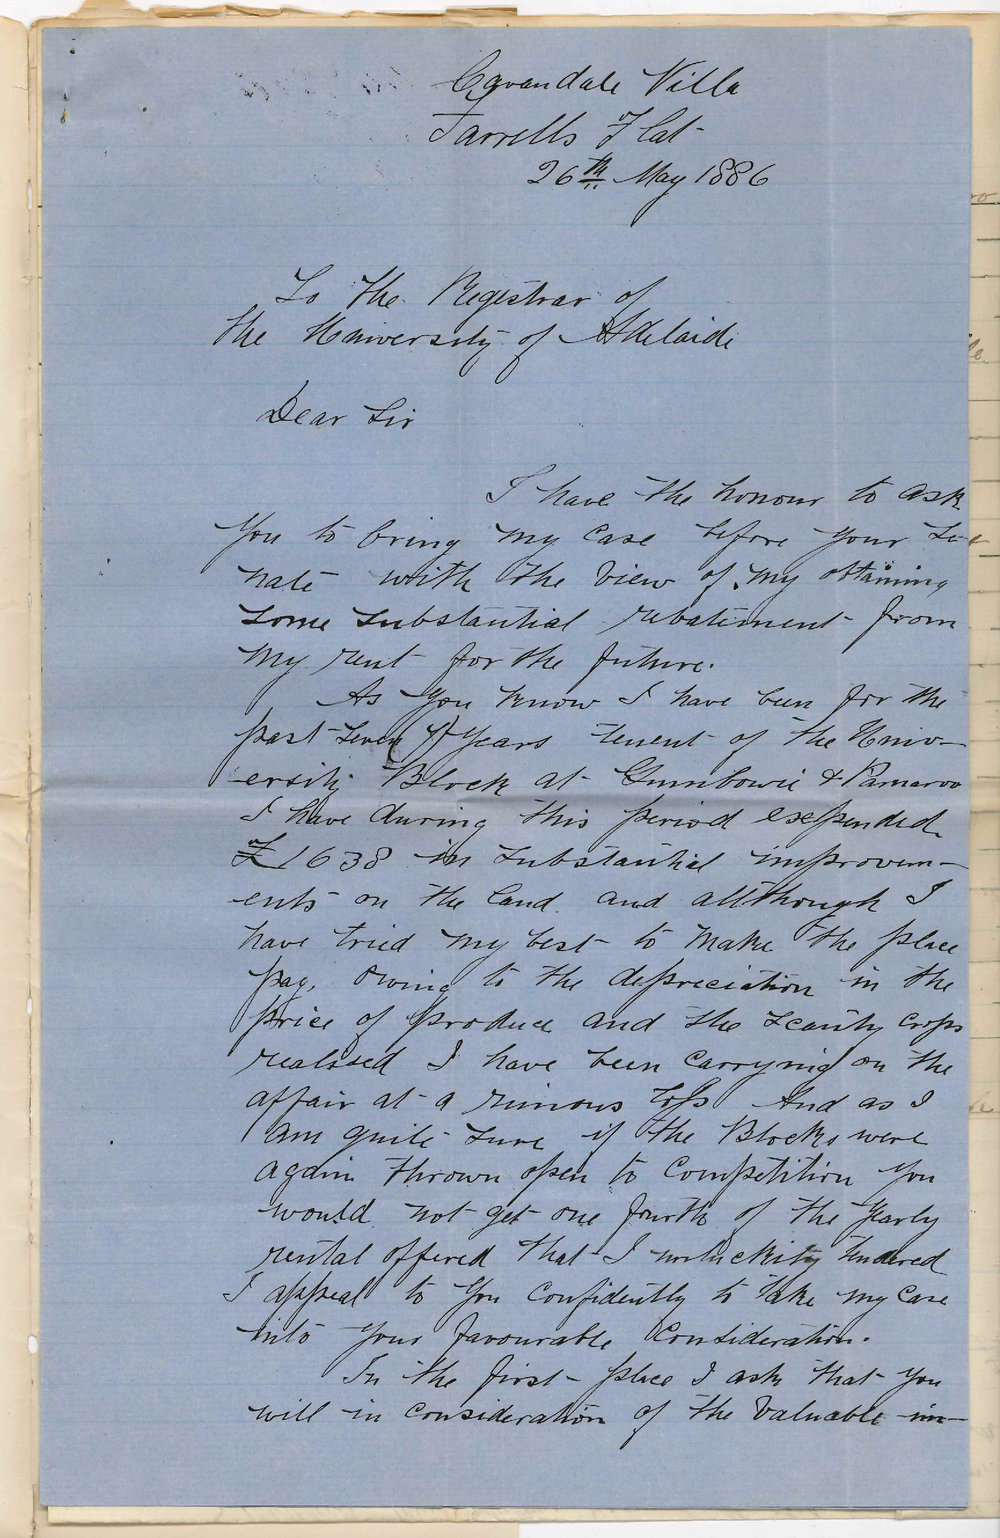 Cavandale Villa
Farrells Flat
26th May 1886
To the Registrar of
the University of Adelaide
Dear Sir
I have the honour to ask
you to bring my case before your Se-
nate with the view of my obtaining
some substantial rebatement from
my rent for the future.
As you know I have been for the
past seven (7) years tenent of the Univ-
ersity Block at Gumbowie & Pamaroo
I have during this period exspended
£1638 in substantial improvem-
ents on the land and allthough I
have tried my best to make the place
pay, owing to the depreciation in the
price of produce and the scanty crops
realised I have been carrying on the
affair at a ruinous loss And as I
am quite sure if the Blocks were
again thrown open to Competition you
would not get one fourth of the yearly
rental offered that I unluckity tendered
I appeal to you confidently to take my case
into your favourable consideration.
In the first place I ask that you
will in consideration of the valuable im-